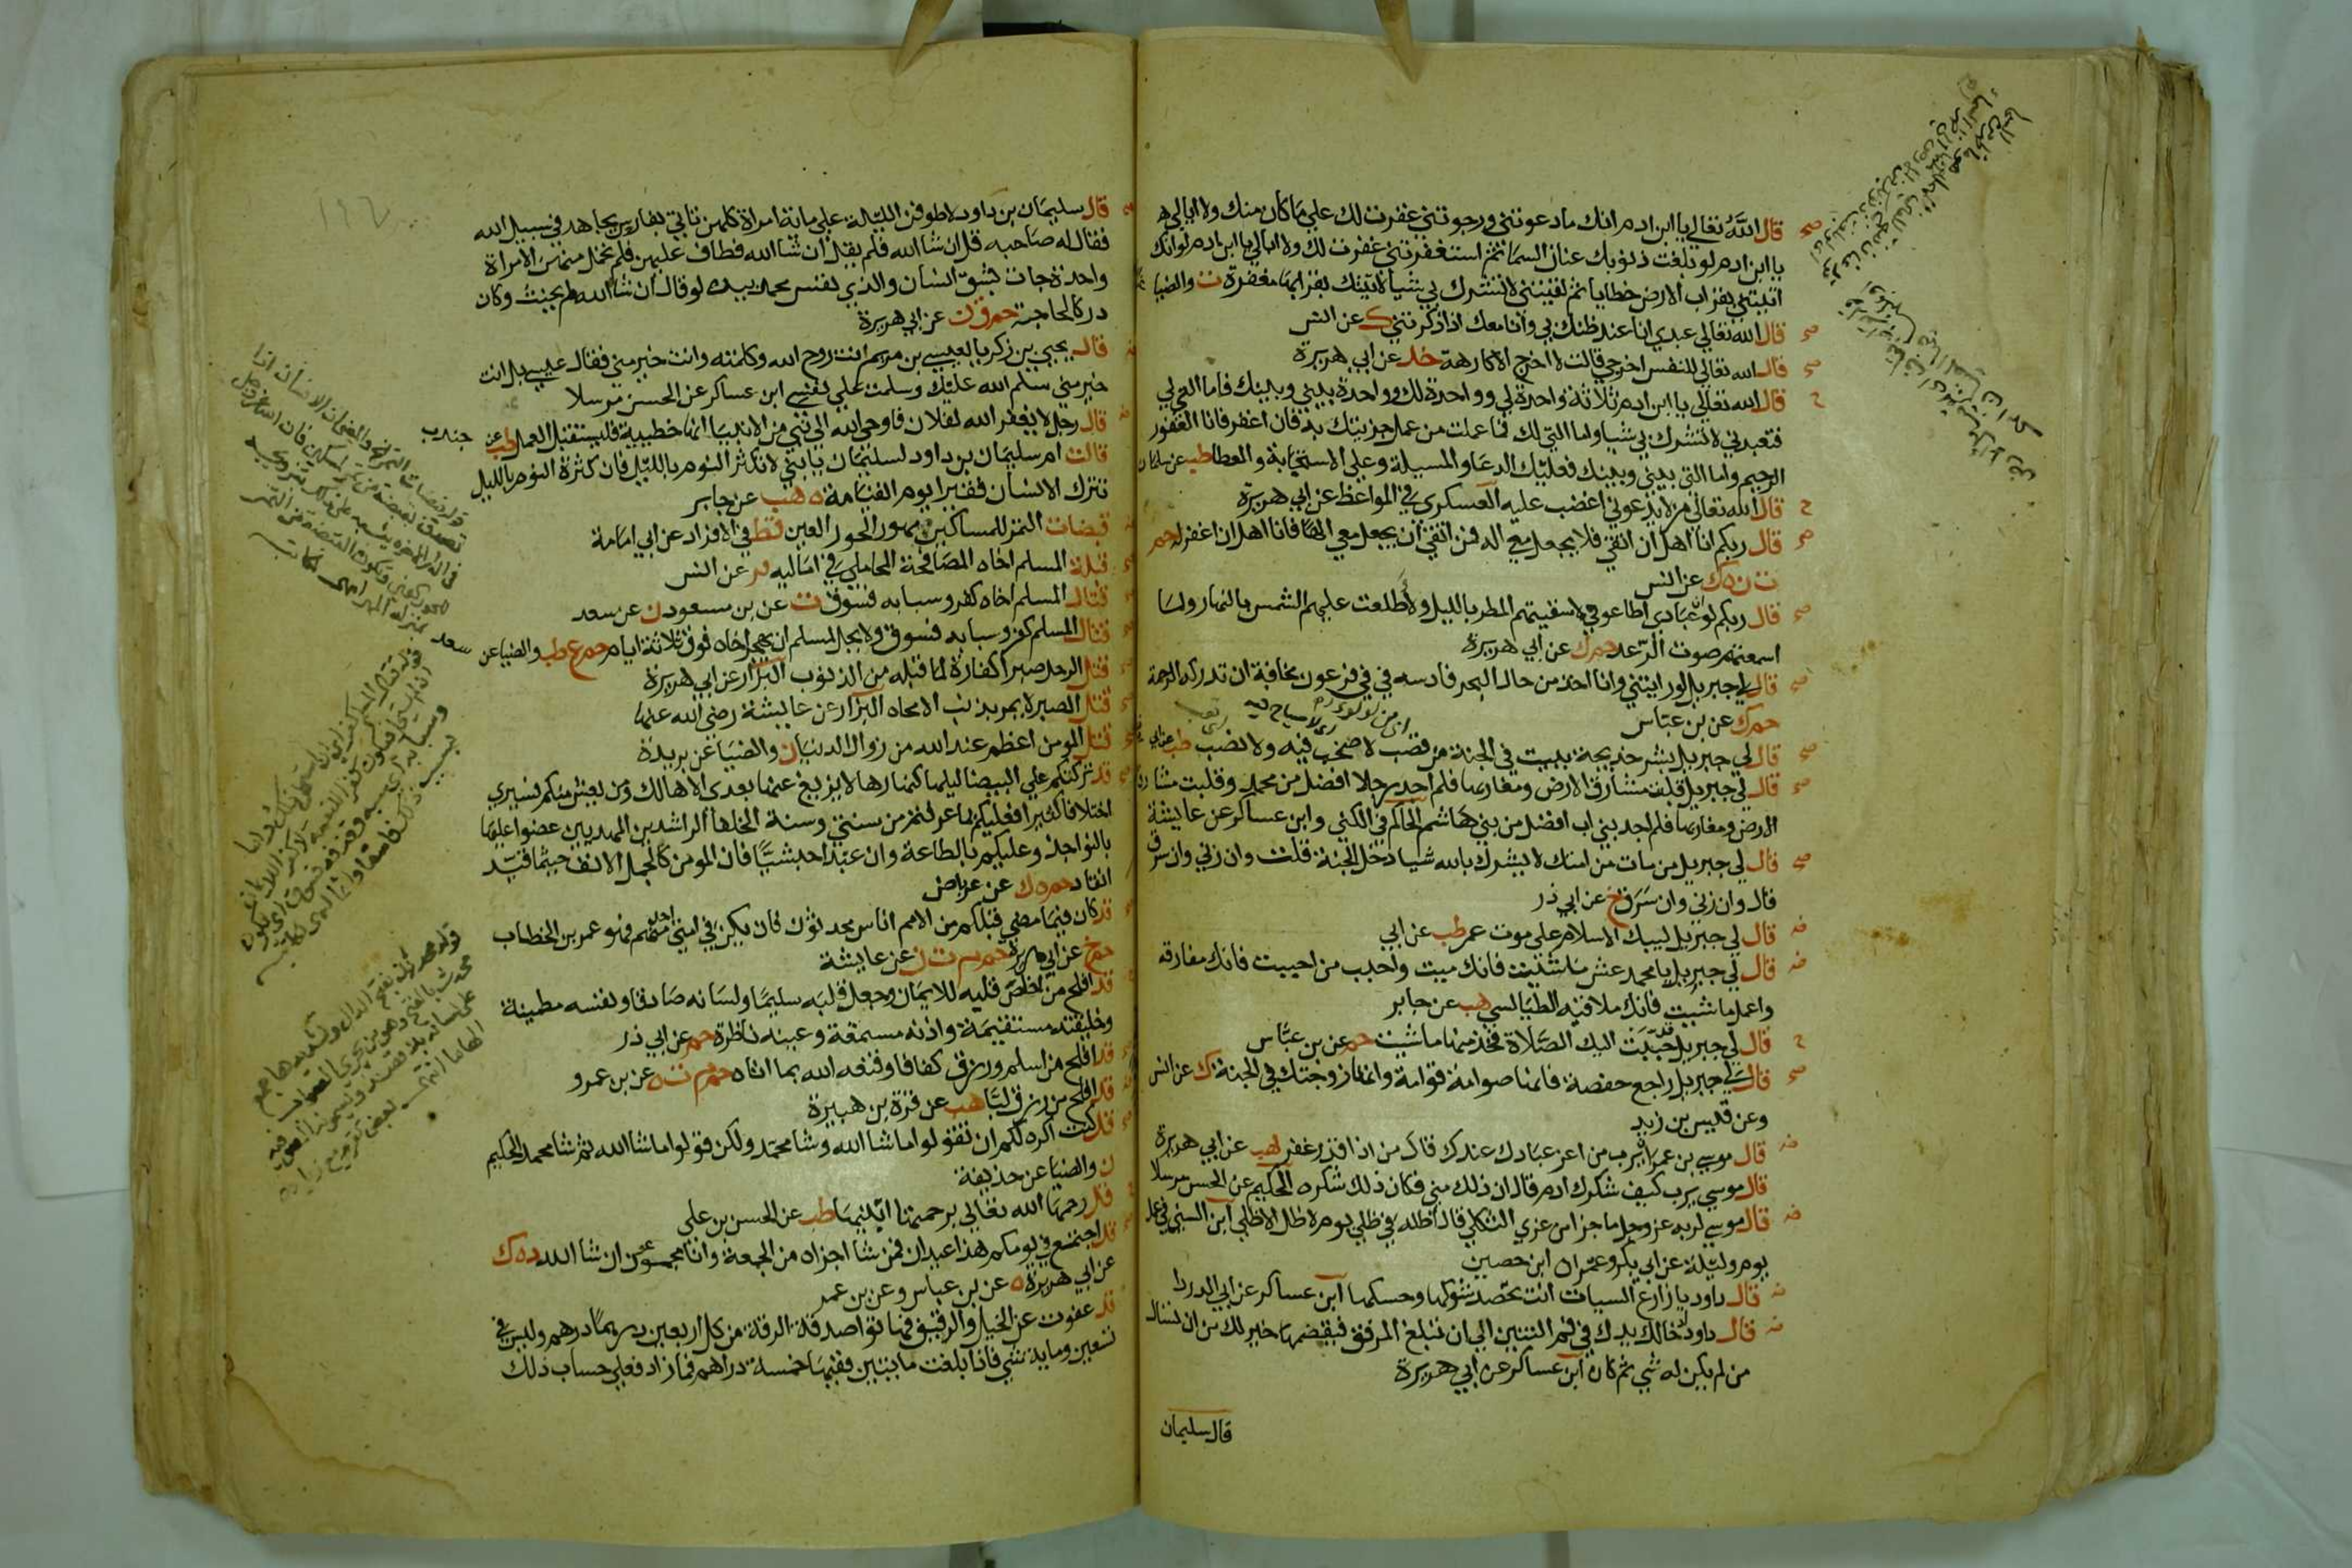 قال الله تعالى يا ابن ادم انك ما دعوتني ورجوتني غفرت لك على ما كان منك ولا ابالي
يا ابن ادم لو بلغت ذنوبك عنان السما ثم استغفرتني غفرت لك ولا ابالي يا ابن ادم لو انك
اتيتني بقراب الارض خطايا ثم لقيتني لا تشرك بي شيا لاتيتك بقرابها مغفرة ت والضيا
قال الله تعالى عبدي انا عند ظنك بي وانا معك اذا ذكرتني ك عن انس
قال الله تعالى للنفس اخرجي قالت لا اخرج الا كارهة خد عن ابي هريرة
قال الله تعالى يا ابن ادم ثلاثة واحدة لي وواحدة لك وواحدة بيني وبينك فاما التي لي
فتعبدني لا تشرك بي شيا واما التي لك فما عملت من عمل جزيتك به فان اغفر فانا الغفور
الرحيم واما التي بيني وبينك فعليك الدعا والمسيلة وعلي الاستجابة والعطا طب عن سلمان
قال الله تعالى من لا يدعوني اغضب عليه العسكري في المواعظ عن ابي هريرة
قال ربكم انا اهل ان اتقى فلا يجعل معي اله فمن اتقى ان يجعل معي الها فانا اهل ان اغفر له حم
ت ن ه ك عن انس
قال ربكم لو ان عبادي اطاعوني لاسقيتهم المطر بالليل ولاطلعت عليهم الشمس بالنهار ولما
اسمعتهم صوت الرعد حم ك عن ابي هريرة
قال لي جبريل لو رايتني وانا اخذ من حال البحر فادسه في في فرعون مخافة ان تدركه الرحمة
حم ك عن بن عباس
قال لي جبريل بشر خديجة ببيت في الجنة من قصب لا صخب فيه ولا نصب طب
قال لي جبريل قلبت مشارق الارض ومغاربها فلم اجد رجلا افضل من محمد وقلبت مشارق
الارض ومغاربها فلم اجد بني اب افضل من بني هاشم الحاكم في الكنى وابن عساكر عن عايشة
قال لي جبريل من مات من امتك لا يشرك بالله شيا دخل الجنة قلت وان زنى وان سرق
قال وان زنى وان سرق خ عن ابي ذر
قال لي جبريل ليبك الاسلام على موت عمر طب عن ابي
قال لي جبريل يا محمد عش ما شيت فانك ميت واحبب من احببت فانك مفارقه
واعمل ما شيت فانك ملاقيه الطيالسي هب عن جابر
قال لي جبريل قد حببت اليك الصلاة فخذ منها ما شيت حم عن بن عباس
قال لي جبريل راجع حفصة فانها صوامة قوامة وانها زوجتك في الجنة ك عن انس
وعن قيس بن زيد
قال موسى بن عمران يا رب من اعز عبادك عندك قال من اذا قدر غفر هب عن ابي هريرة
قال موسى يا رب كيف شكرك ادم قال ان ذلك مني فكان ذلك شكره الحكيم عن الحسن مرسلا
قال موسى لربه عز وجل ما جزا من عزى الثكلى قال اظله في ظلي يوم لا ظل الا ظلي ابن السني في عمل
يوم وليلة عن ابي بكر وعمران ابن حصين
قال داود يا زارع السيات انت تحصد شوكها وحسكها ابن عساكر عن ابي الدردا
قال داود ادخالك يدك في فم التنين الى ان تبلغ المرفق فيقضمها خير لك من ان تسال
من لم يكن له شي ثم كان ابن عساكر عن ابي هريرة
قال سليمان
١٩٦
قال سليمان بن داود لاطوفن الليلة على ماية امراة كلهن تاتي بفارس يجاهد في سبيل الله
فقال له صاحبه قل ان شا الله فلم يقل ان شا الله فطاف عليهن فلم تحمل منهن الا امراة
واحدة جات بشق انسان والذي نفس محمد بيده لو قال ان شا الله لم يحنث وكان
دركا لحاجته حم ق ن عن ابي هريرة
قال يحيى بن زكريا لعيسى بن مريم انت روح الله وكلمته وانت خير مني فقال عيسى بل انت
خير مني سلم الله عليك وسلمت على نفسي ابن عساكر عن الحسن مرسلا
قال رجل لا يغفر الله لفلان فاوحى الله الى نبي من الانبيا انها خطيية فليستقبل العمل طب عن جندب
قالت ام سليمان بن داود لسليمان يا بني لا تكثر النوم بالليل فان كثرة النوم بالليل
تترك الانسان فقيرا يوم القيامة ه هب عن جابر
قبضات التمر للمساكين مهور الحور العين قط في الافراد عن ابي امامة
قبلة المسلم اخاه المصافحة المحاملي في اماليه فر عن انس
قتال المسلم اخاه كفر وسبابه فسوق ت عن بن مسعود ن عن سعد
قتال المسلم كفر وسبابه فسوق ولا يحل لمسلم ان يهجر اخاه فوق ثلاثة ايام حم ع طب والضيا عن سعد
قتل الرجل صبرا كفارة لما قبله من الذنوب البزار عن ابي هريرة
قتل الصبر لا يمر بذنب الا محاه البزار عن عايشة رضي الله عنها
قتل المومن اعظم عند الله من زوال الدنيا ن والضيا عن بريدة
قد تركتكم على البيضا ليلها كنهارها لا يزيغ عنها بعدي الا هالك ومن يعش منكم فسيرى
اختلافا كثيرا فعليكم بما عرفتم من سنتي وسنة الخلفا الراشدين المهديين عضوا عليها
بالنواجذ وعليكم بالطاعة وان عبدا حبشيا فان المومن كالجمل الانف حيثما قيد
انقاد حم ه ك عن عرباض
قد كان فيما مضى قبلكم من الامم اناس محدثون فان يكن في امتي احد منهم فهو عمر بن الخطاب
حم خ عن ابي هريرة حم م ت ن عن عايشة
قد افلح من اخلص قلبه للايمان وجعل قلبه سليما ولسانه صادقا ونفسه مطمينة
وخليقته مستقيمة واذنه مستمعة وعينه ناظرة حم عن ابي ذر
قد افلح من اسلم ورزق كفافا وقنعه الله بما اتاه حم م ت ه عن بن عمرو
قد افلح من رزق لبا هب عن قرة بن هبيرة
قد كنت اكره لكم ان تقولوا ما شا الله وشا محمد ولكن قولوا ما شا الله ثم شا محمد الحكيم
ن والضيا عن حذيفة
قد رحمها الله تعالى برحمتها ابنيها طب عن الحسن بن علي
قد اجتمع في يومكم هذا عيدان فمن شا اجزاه من الجمعة وانا مجمعون ان شا الله د ه ك
عن ابي هريرة ه عن بن عباس وعن بن عمر
قد عفوت عن الخيل والرقيق فهاتوا صدقة الرقة من كل اربعين درهما درهم وليس في
تسعين وماية شي فاذا بلغت مايتين ففيها خمسة دراهم فما زاد فعلى حساب ذلك